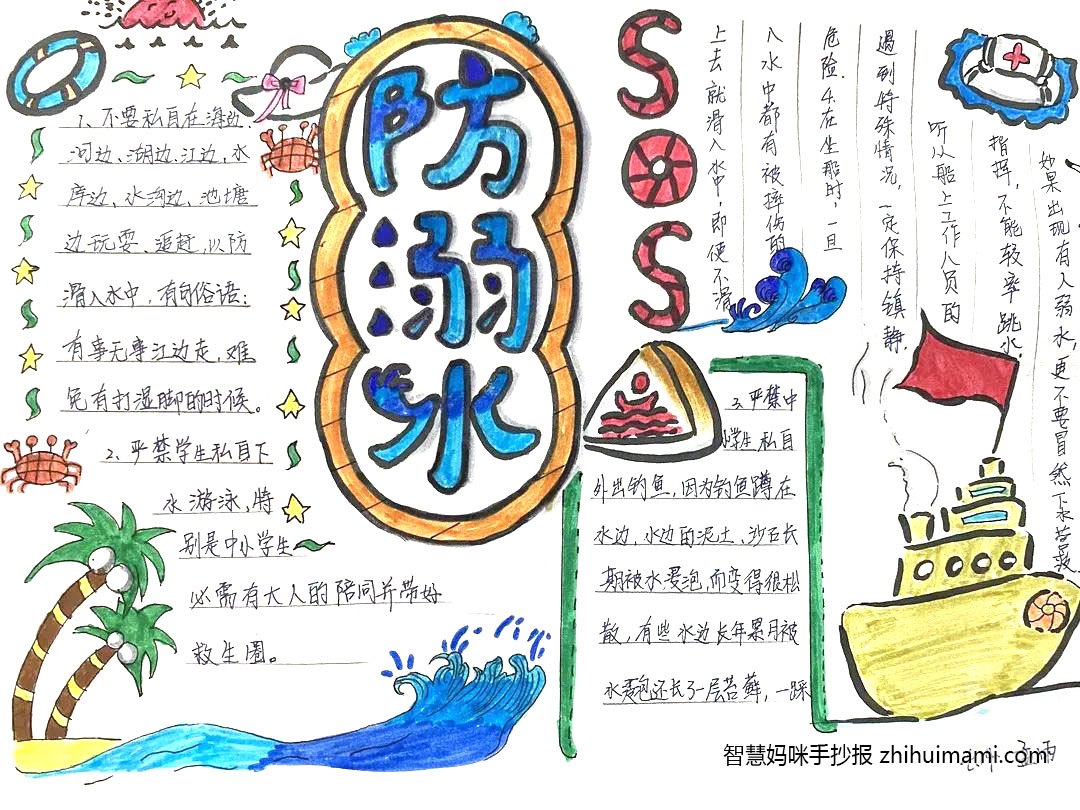 防溺水
SOS
1、不要私自在海边、
河边、湖边、江边、水
库边、水沟边、池塘
边玩耍、追赶,以防
滑入水中,有句俗语:
有事无事江边走,难
免有打湿脚的时候。
2、严禁学生私自下
水游泳,特
别是中小学生
必需有大人的陪同并带好
救生圈。
3、严禁中
小学生私自
外出钓鱼,因为钓鱼蹲在
水边,水边的泥土、沙石长
期被水浸泡,而变得很松
散,有些水边长年累月被
水浸泡还长了一层苔藓,一踩
上去就滑入水中,即使不滑
入水中都有被摔伤的
危险.4.在坐船时,一旦
遇到特殊情况,一定保持镇静.
听从船上工作人员的
指挥,不能轻率跳水.
如果出现有人溺水,更不要冒然下水
智慧妈咪手抄报 zhihuimami.com